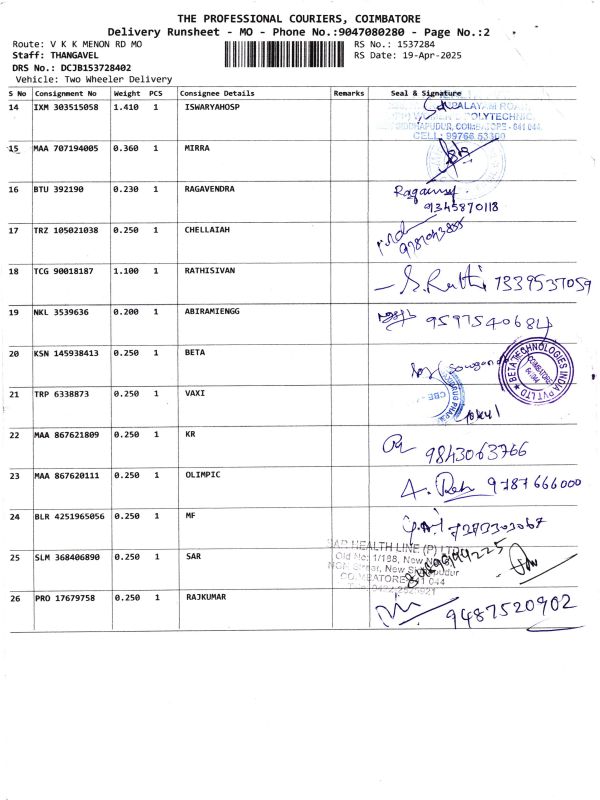 THE PROFESSIONAL COURIERS, COIMBATORE
Delivery Runsheet - MO - Phone No.:9047080280 - Page No.:2
Route: V K K MENON RD MO
RS No.: 1537284
Staff: THANGAVEL
RS Date: 19-Apr-2025
DRS No.: DCJB153728402
Vehicle: Two Wheeler Delivery
S No Consignment No Weight PCS Consignee Details Remarks Seal & Signature
14 IXM 303515058 1.410 1 ISWARYAHOSP
POLYTECHNIC
SIDDHAPUDUR, COIMBATORE - 641 044.
CELL: 99766 53300
15 MAA 707194005 0.360 1 MIRRA
16 BTU 392190 0.230 1 RAGAVENDRA
91345870118
17 TRZ 105021038 0.250 1 CHELLAIAH
18 TCG 90018187 1.100 1 RATHISIVAN
S. Rathi 7339537059
19 NKL 3539636 0.200 1 ABIRAMIENGG
9597540684
20 KSN 145938413 0.250 1 BETA
BETA TECHNOLOGIES INDIA PVT LTD
21 TRP 6338873 0.250 1 VAXI
22 MAA 867621809 0.250 1 KR
9843063766
23 MAA 867620111 0.250 1 OLIMPIC
9787666000
24 BLR 4251965056 0.250 1 MF
7293303067
25 SLM 368406890 0.250 1 SAR
SAR HEALTH LINE (P) LTD
Old No: 1/188, New No
Street, New Siddhapudur
COIMBATORE - 641 044
26 PRO 17679758 0.250 1 RAJKUMAR
9487520902